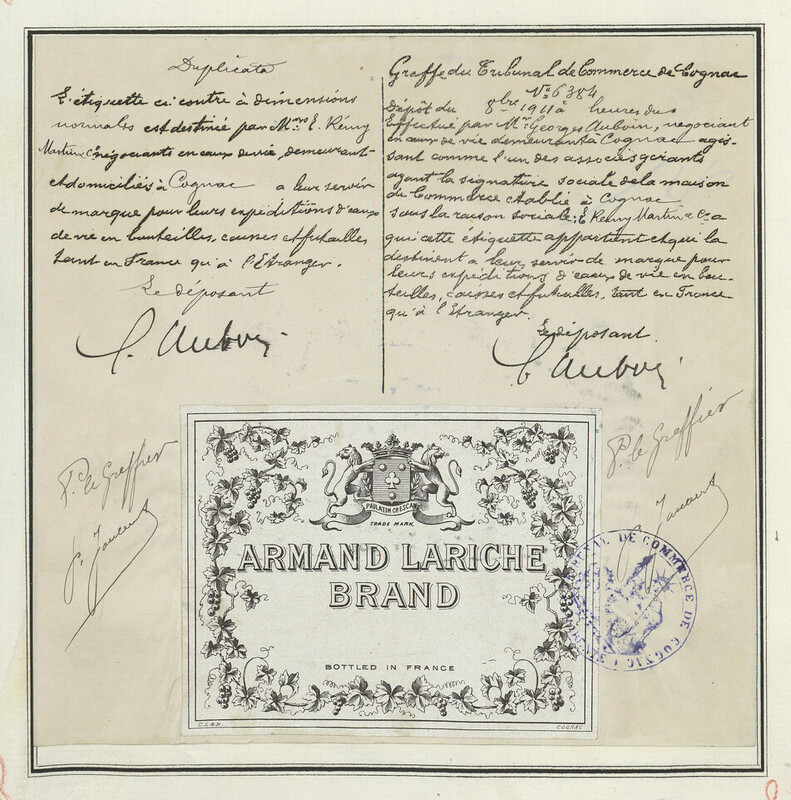 Duplicata
L'étiquette ci contre à dimensions
normales est destiné par Mrs E. Rémy
Martin & Cie négociants en eaux de vie, demeurant
et domiciliés à Cognac a leur servir
de marque pour leurs expéditions d'eaux
de vie en bouteilles, caisses et futailles
tant en France qu'à l'Etranger.
Le déposant
G. Auboin
P. le Greffier
Greffe du Tribunal de Commerce de Cognac
No 6384
Dépôt du 8bre 1911 à heures du
Effectué par Mr Georges Auboin, négociant
en eaux de vie demeurant à Cognac agis-
sant comme l'un des associés gérants
ayant la signature sociale de la maison
de Commerce etablie à Cognac
sous la raison sociale: E. Rémy Martin & Cie a
qui cette étiquette appartient et qui la
destinent a leur servir de marque pour
leurs expéditions d'eaux de vie en bou-
teilles, caisses et futailles, tant en France
qu'à l'Etranger.
Le déposant
G. Auboin
P. le Greffier
PAULATIM CRESCAM
TRADE MARK
ARMAND LARICHE
BRAND
BOTTLED IN FRANCE
COGNAC
TRIBUNAL DE COMMERCE DE COGNAC